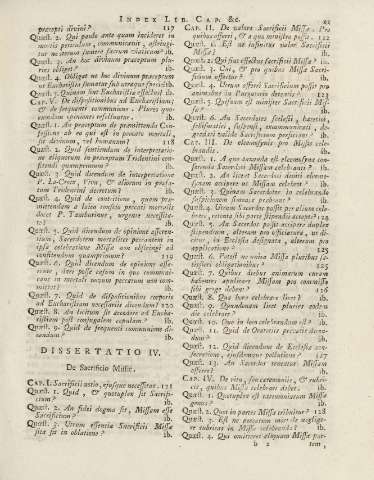 INDEX LIB. CAP. &c.
præcepti divini? 117
Quæst. 2. Qui pueste ante quam incideret in
mortis periculum, communicatur, astringitur
ne iterum sumere sacrum viaticum? ib.
Quæst. 3. An hoc divinum præceptum pluries
obliget? ib.
Quæst. 4. Obliget ne hoc divinum præceptum
ne Eucharistia sumatur sub utraque specie? ib.
Quæst. 5. Quinam sint Eucharistia ib.
CAP. V. De dispositionibus ad Eucharistiam,
& de frequenti communione. Plures
ib.
Quæst. 1. An præceptum de præmittenda Confessione
ab eo qui est in peccato mortali,
sit divinum, vel humanum? 118
Quæst. 2. Quid sentiendum de interpretatione
aliquorum in præceptum Tridentini confitendi
quamprimum? ib.
Quæst. 3. Quid dicendum de interpretatione
P. La-Croix, Viva, & aliorum in præfatum
Tridentini decretum? ib.
Quæst. 4. Quid de contritione, quam præmittendam
a laico conscio peccati mortalis
docet P. Tamburinus, urgente necessitate?
ib.
Quæst. 5. Quid dicendum de opinione asserentium,
Sacerdotem mortaliter peccantem in
ipsa celebratione Missæ non adstringi ad
confitendum quamprimum? 119
Quæst. 6. Quid dicendum de opinione asserentium,
dari posse casum in quo communicans
in mortali novum peccatum non committit?
ib.
Quæst. 7. Quid de dispositionibus corporis
ad Eucharistiam necessariis dicendum? 120
Quæst. 8. An licitum sit accedere ad Eucharistiam
post conjugalem copulam? ib.
Quæst. 9. Quid de frequenti communione dicendum?
ib.
DISSERTATIO IV.
De Sacrificio Missæ.
CAP. I. Sacrificii ratio, ejusque necessitas. 121
Quæst. 1. Quid, & quotuplex sit Sacrificium?
ib.
Quæst. 2. An fidei dogma sit, Missam esse
Sacrificium? ib.
Quæst. 3. Utrum essentia Sacrificii Missæ
sita sit in oblatione? ib.
CAP. II. De valore Sacrificii Missæ. Pro
quibus offerri, & a quo ministro possit. 122
Quæst. 1. Est ne infinitus valor Sacrificii
Missæ? ib.
Quæst. 2. Qui sint effectus sacrificii Missæ? ib.
Quæst. 3. Cui, & pro quibus Missæ Sacrificium
offertur? ib.
Quæst. 4. Utrum offerri Sacrificium possit pro
animabus in Purgatorio detentis? 123
Quæst. 5. Quisnam est minister Sacrificii Missæ?
ib.
Quæst. 6. An Sacerdotes scelesti, hæretici,
schismatici, suspensi, excommunicati, degradati
valide Sacrificium perficiant? ib.
CAP. III. De eleemosynis pro Missa celebrandis.
ib.
Quæst. 1. A quo augenda est eleemosyna conferenda
Sacerdoti Missam celebranti? ib.
Quæst. 2. An liceat Sacerdoti diviti eleemosynam
accipere ut Missam celebret? ib.
Quæst. 3. Quinam Sacerdotes in celebrando
suspicionem simoniæ præbeant? ib.
Quæst. 4. Utrum Sacerdos possit per alium celebrare,
retenta sibi parte stipendii accepti? 124
Quæst. 5. An Sacerdos possit accipere duplex
stipendium, alterum pro officiatura, ut dicitur,
in Ecclesia designata, alterum pro
applicatione? 125
Quæst. 6. Potest ne unica Missa pluribus satisfieri
obligationibus? 125
Quæst. 7. Quibus diebus animarum curam
habentes applicare Missam pro commisso
sibi grege debent? 126
Quæst. 8. Qua hora celebrari licet? ib.
Quæst. 9. Quandonam licet pluries eodem
die celebrare? ib.
Quæst. 10. Quo in loco celebrandum est? ib.
Quæst. 11. Quid de Oratoriis privatis dicendum?
ib.
Quæst. 12. Quid dicendum de Ecclesiæ consecratione,
ejusdemque pollutione? 127
Quæst. 13. An Sacerdos teneatur Missam
offerre? ib.
CAP. IV. De ritu, seu cæremoniis, & rubricis,
quibus Missæ celebrari debet. ib.
Quæst. 1. Quotuplex est cæremoniarum Missæ
genus? ib.
Quæst. 2. Quot in partes Missa tribuitur? 128
Quæst. 3. Est ne peccatum mortale negligere
rubricas in Missæ celebrandis? ib.
Quæst. 4. Qui omitteret aliquam Missæ partem
b 2 tem,